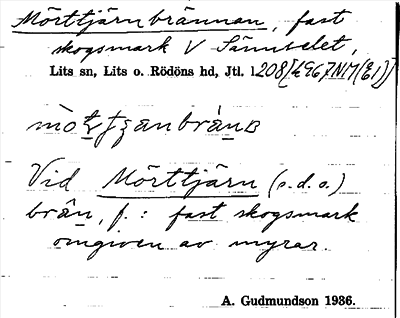 Mörttjärnbrännan, fast
skogsmark V Sännselet,
Lits sn, Lits o. Rödöns hd, Jtl. 1208
Vid Mörttjärn (s.d.o.)
brån, f.: fast skogsmark
omgiven av myrar.
A. Gudmundson 1936.